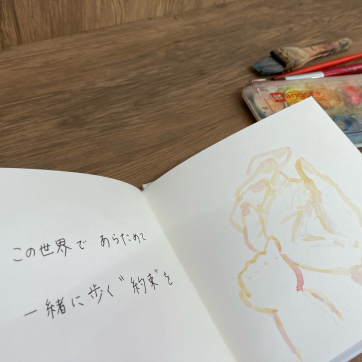 この世界で あらためて
一緒に歩く“約束”を